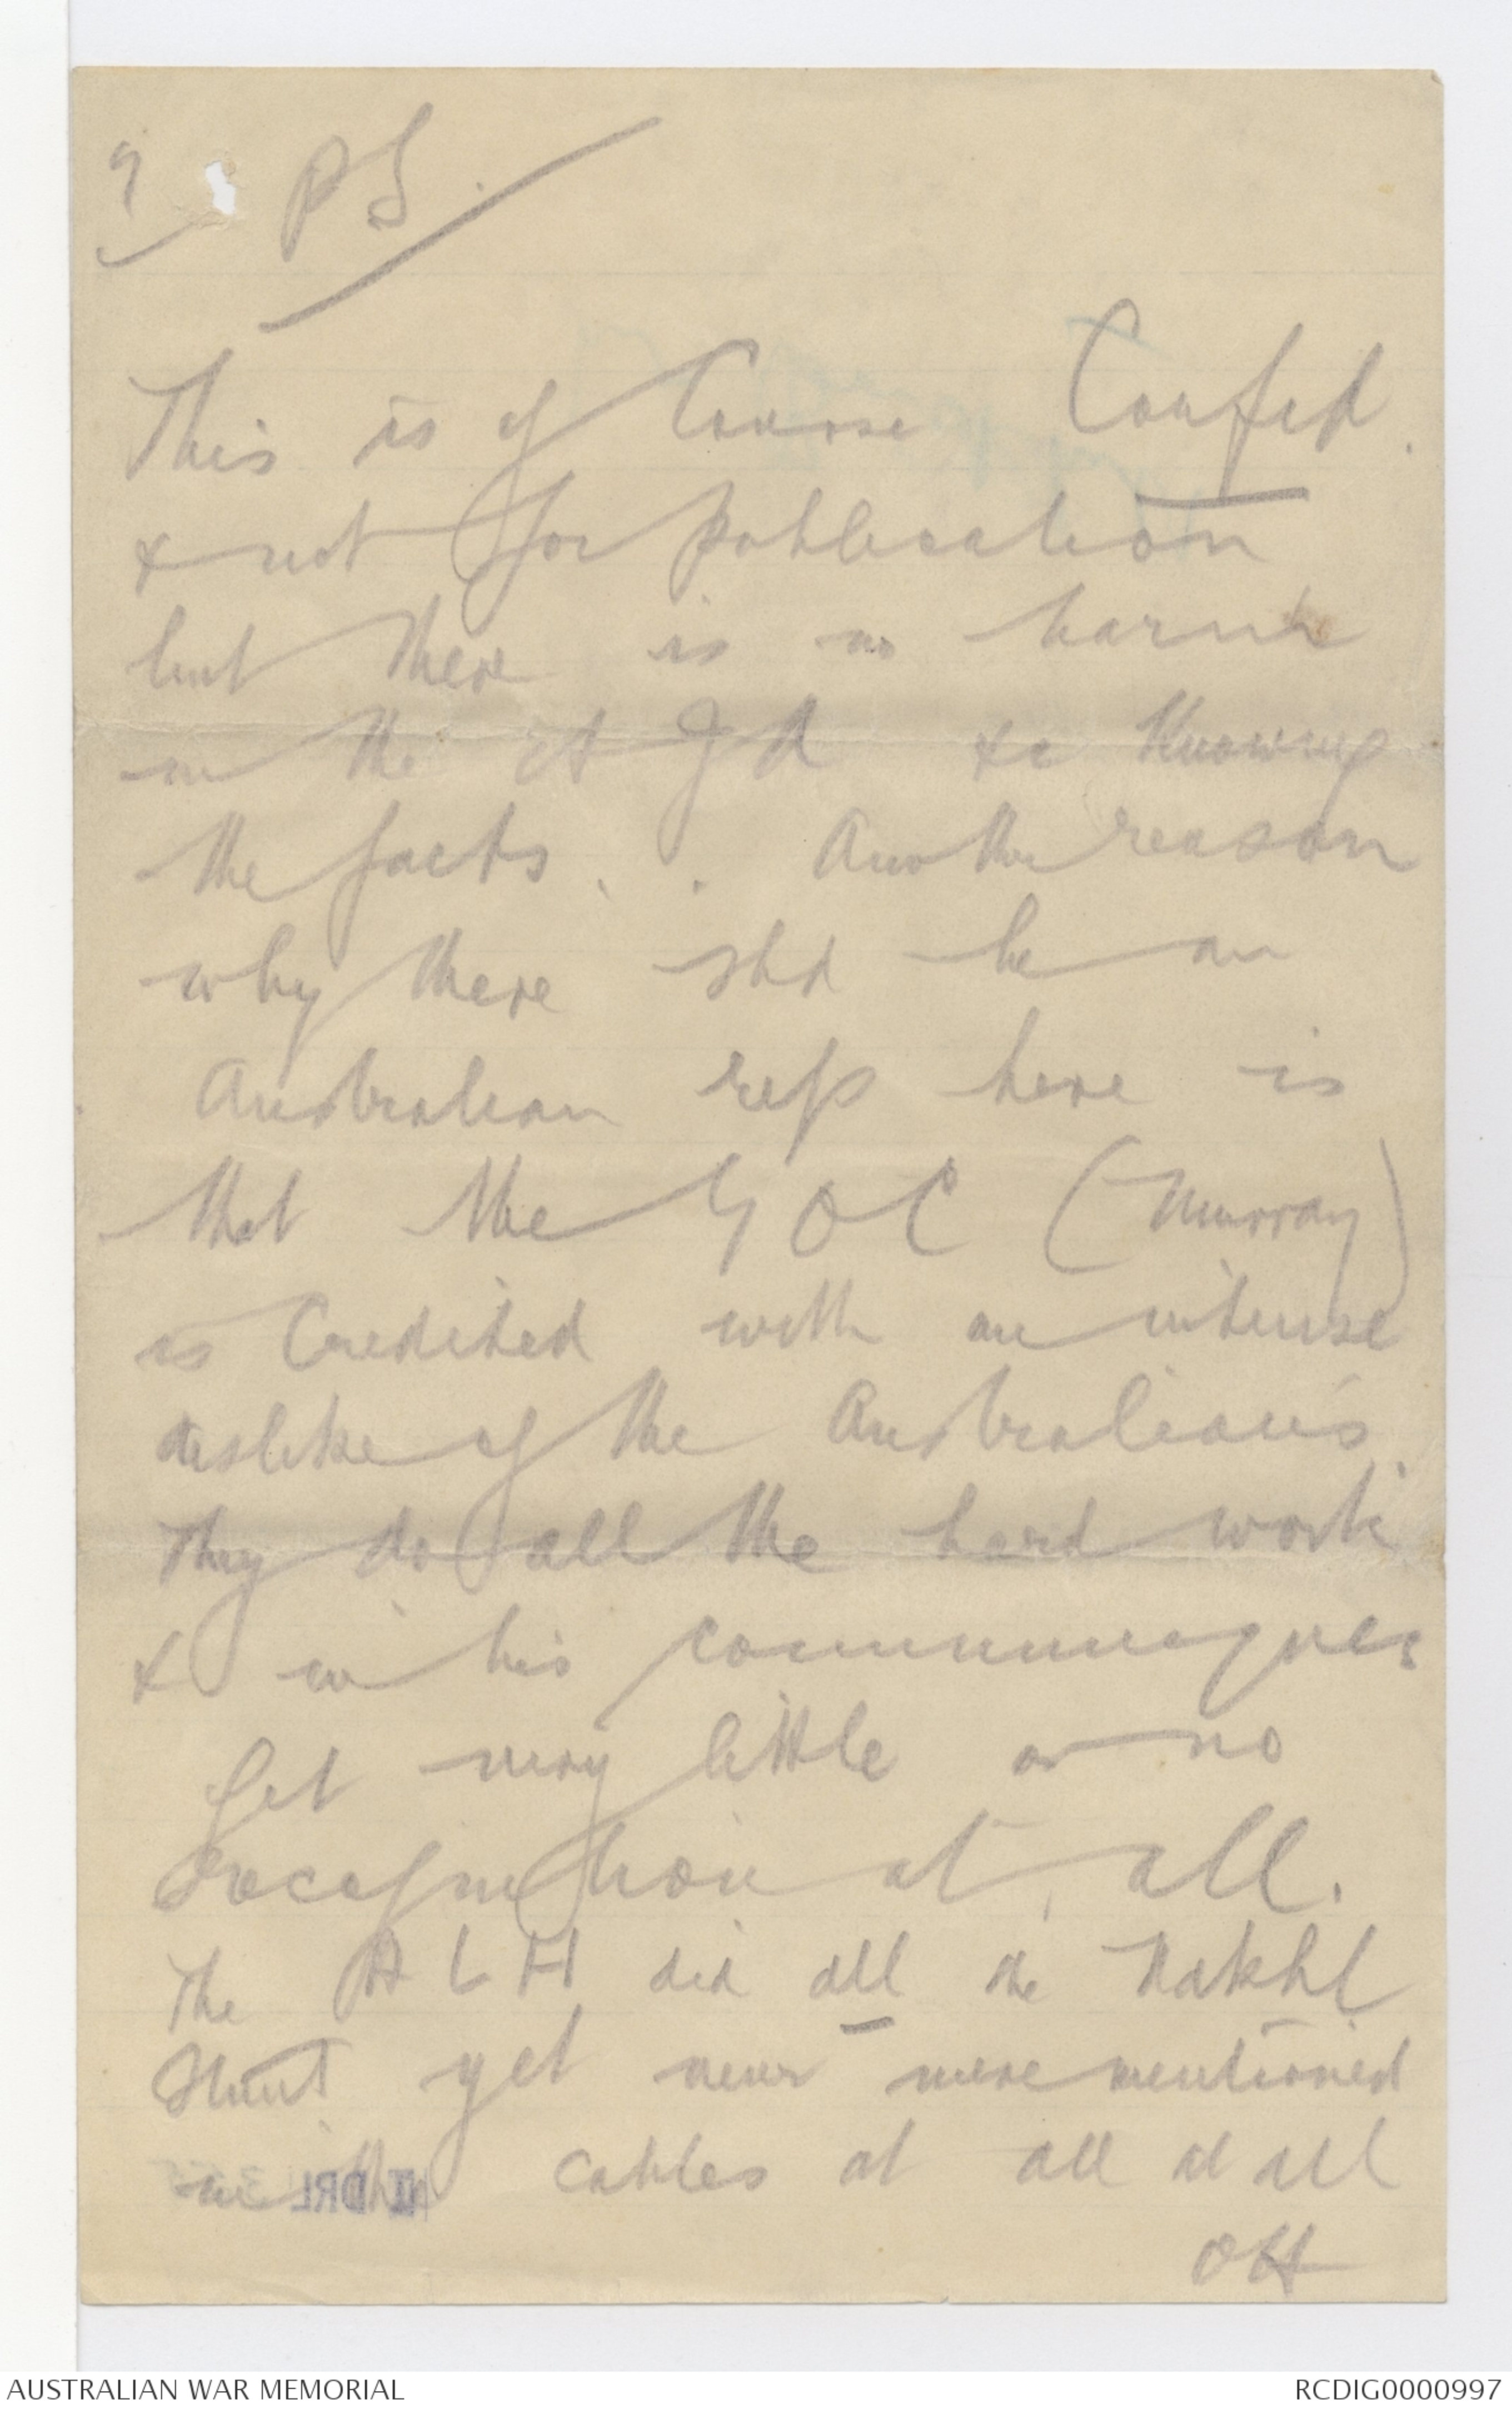 9 PS.
This is of course Confid.
& not for publication
but there is no harm
in the A J A &c knowing
the facts. Another reason
why there shd be an
Australian rep here is
that the GOC (Murray)
is credited with an intense
dislike of the Australians.
They do all the hard work
& in his communiques
get very little or no
recognition at all.
The ALH did all the Nakhl
stunt yet never were mentioned
in the cables at all at all
OH
AUSTRALIAN WAR MEMORIAL
RCDIG0000997